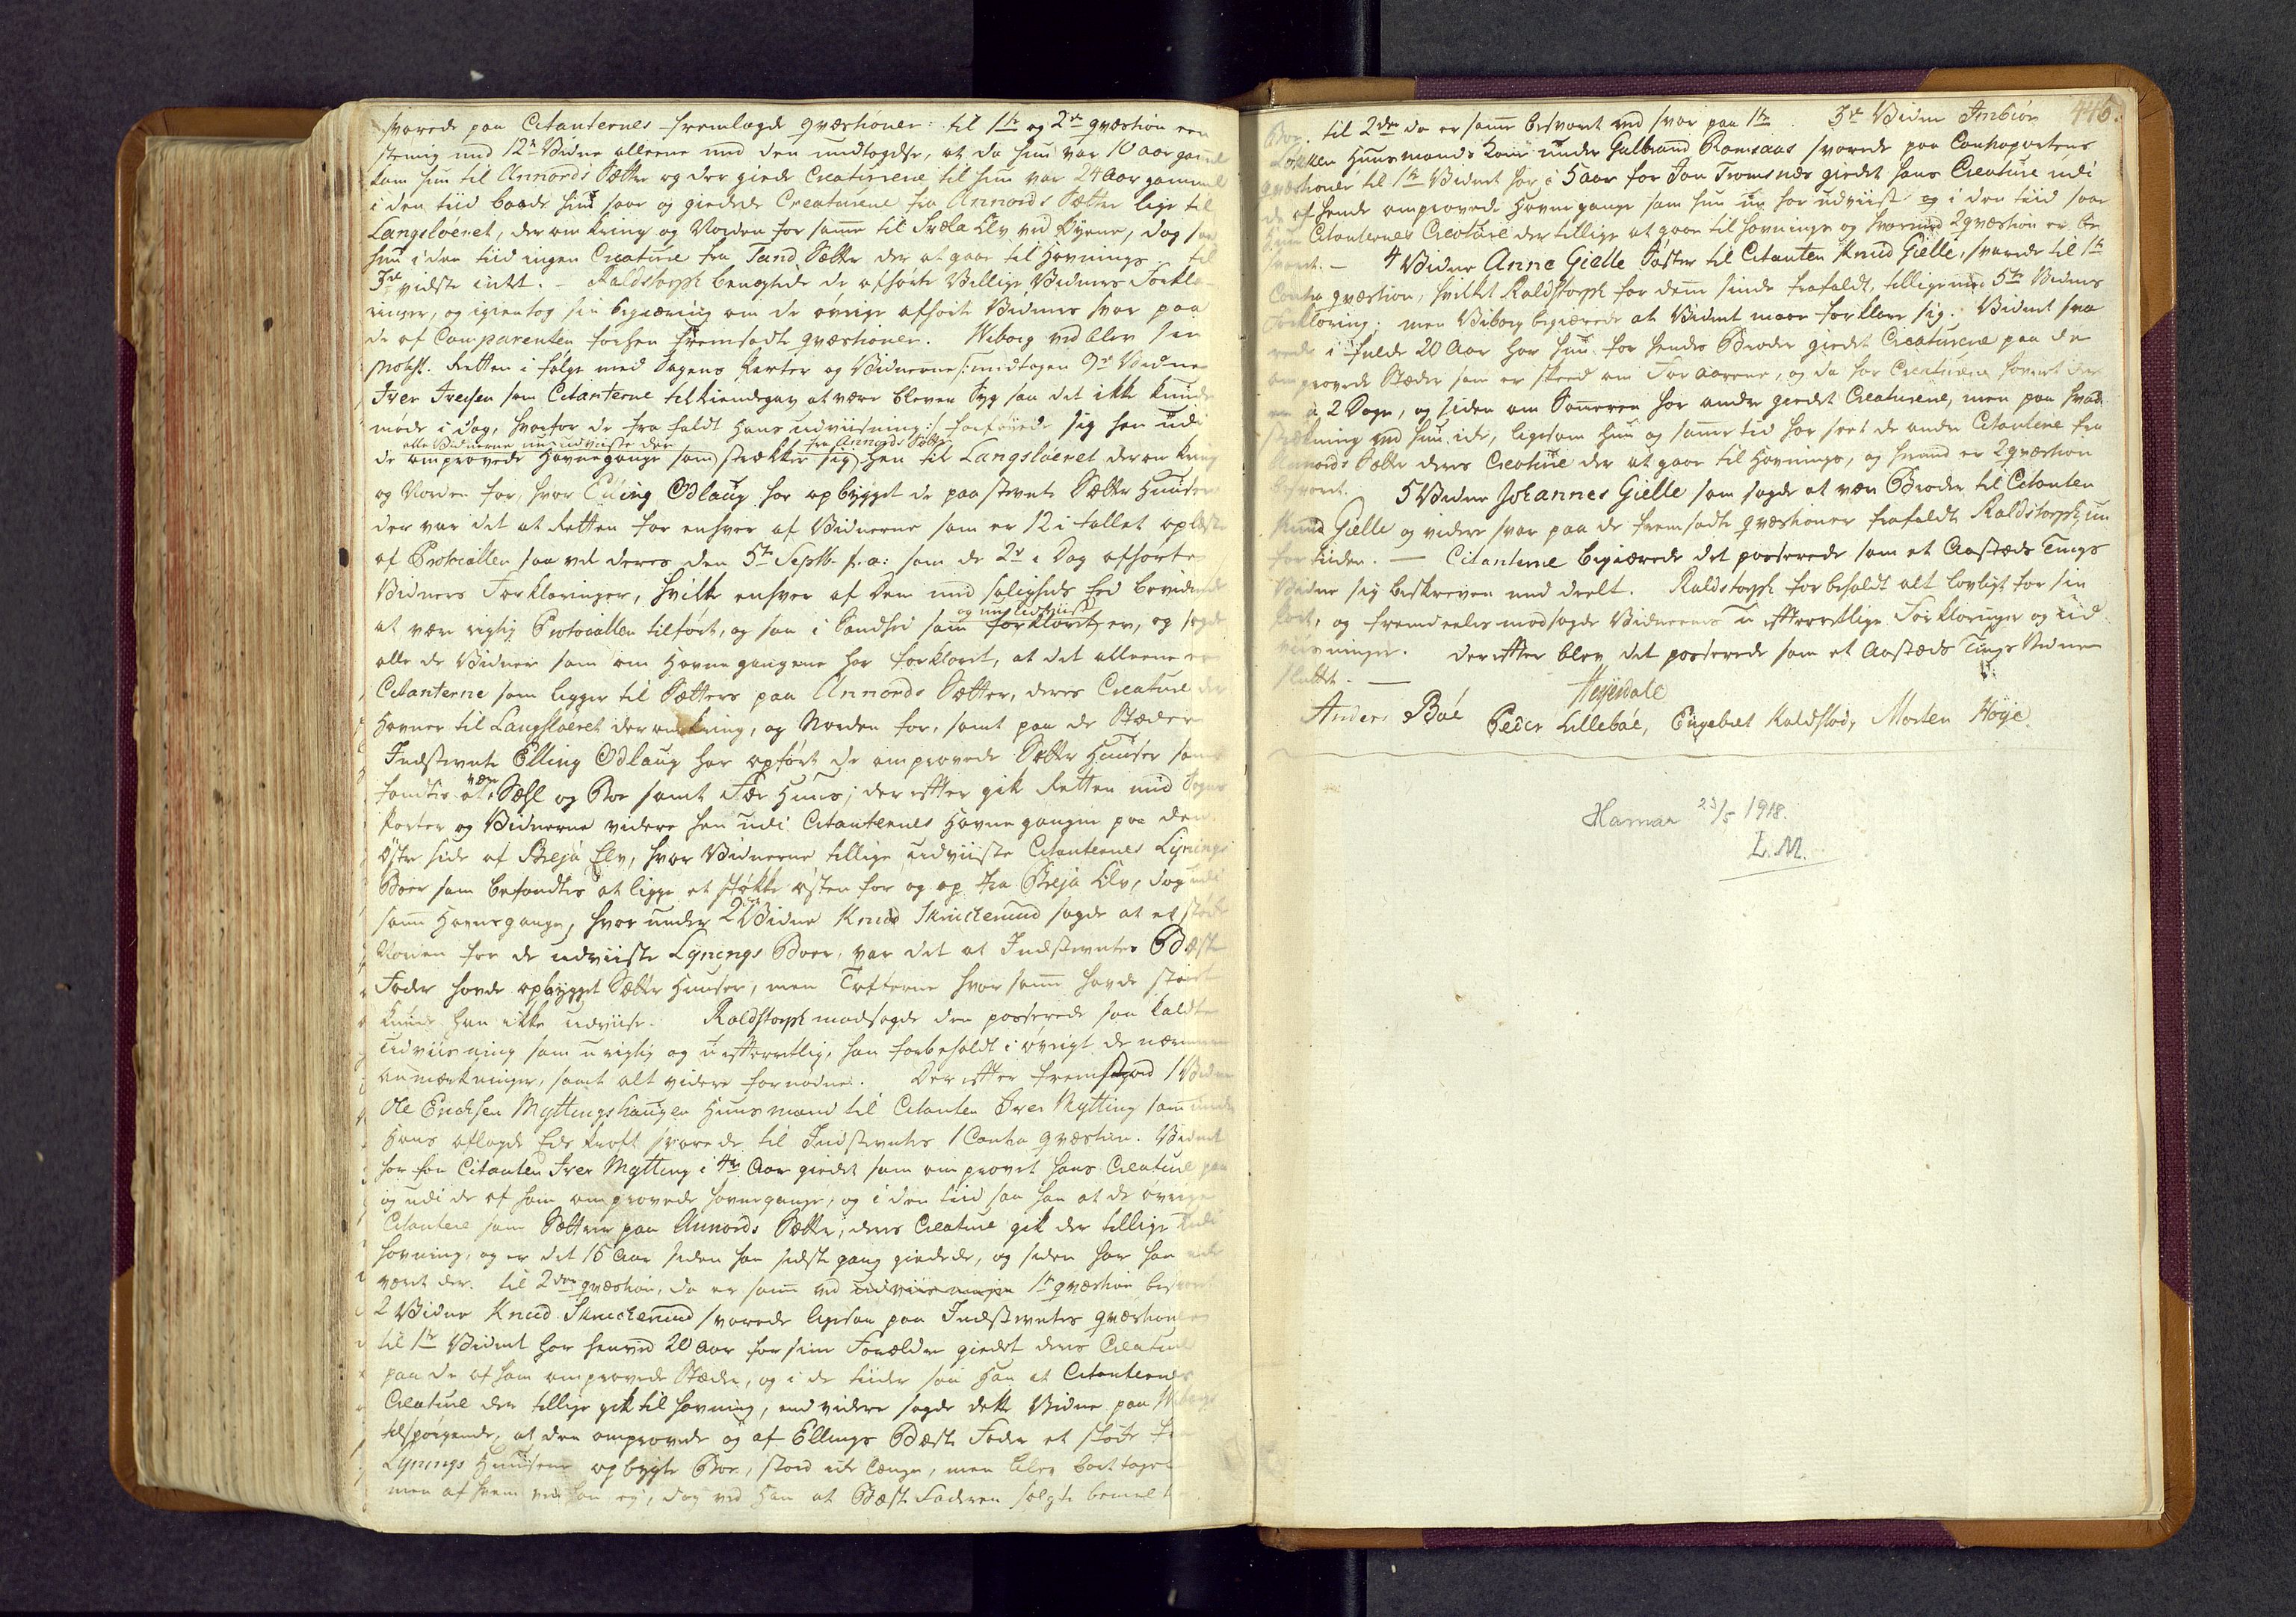 svarede paa Citanternes fremlagde qvæstioner: til 1te og 2den qvæstion een
stemig med 12te Vidne alleene med den undtagelse, at da hun var 10 aar gammel
kom hun til Annords Sætter og der giede Creaturene til hun var 24 Aar gammel
i den tiid baade hun saae og giedede Creaturene fra Annords Sætter lige til
Langsloenet, der om kring og Norden for samme til Fræla Elv ved Byene, dog saae
hun i den tiid ingen Creature fra Tand Sætter der at gaae til Havnings. til
3de vidste intet. - Raldstorph benegtede de afhørte Villige Vidners Forkla-
ringer, og igientog sin begiæring om de øvrige afhørte Vidners svar paa
de af Comparenten forhen fremsadte qvæstioner. Wiborg ved blev sin
Protest. Retten i følge med Sagens Parter og Vidnerne /: undtagen 9de Vidne
Iver Iversen som Citanterne tilkiendegav at være bleven syg saa det ikke kunde
møde i dag, hvorfor de fra faldt Hans udviisning :/ forføyede sig hen udi
alle Vidnerne nu udviiste den fra Annords Sætter
de omprovede Havnegange som strækker sig hen til Langsloenet der om kring
og Norden for, hvor Elling Odlaug har opbygget de paastevnte Sætter Huuser
der var det at Retten for enhver af Vidnerne som er 12 i tallet oplæste
af Protocollen saa vel deres den 5te Septb. f. a: som de 2de i Dag afhørte
Vidners Forklaringer, hvilke enhver af dem med saligheds Eed bevidnede
og nu udviist
at være rigtig Protocollen tilført, og saa i Sandhed som forklaret er, og sagde
alle de Vidner som om Havnegangene har forklaret, at det alleene er
Citanterne som ligger til Sætters paa Annords Sætter, deres Creature der
Havner til Langsloenet der om kring, og Norden for, samt paa de Stæder
Indstevnte Elling Odlaug har opført de omprovede Sætter Huuser som
fandtes at være Sæhl og Boe samt Fæe Huus; der efter gik Retten med Sagens
Parter og Vidnerne videre hen udi Citanternes Havnegange paa den
Østre side af Breja Elv, hvor Vidnerne tillige udviiste Citanternes Lynings
Boer som befandtes at ligge et støkke østen for og op fra Breja Elv, dog udi
samme Havnegange, hvor under 2det Vidne Knud Skruckerud sagde at et støkke
Norden for de udviiste Lynings Boer, var det at Indstevntes Bæste
Fader havde opbygget Sætter Huuser, men Tofterne hvor samme havde staaet
kunde han ikke udviise. Raldstorph modsagde den passerede saa kaldte
udviisning som urigtig og u efterrettlig, han forbeholdt i øvrigt de nærmere
anmerkninger, samt alt videre fornødne. Der efter fremstoed 1 Vidne
Ole Erichsen Myttingshaugen Huusmand til Citanten Iver Mytting som under
Hans aflagde Eeds kraft svarede til Indstevntes 1 Contra qvæstion. Vidnet
har for Citanten Iver Mytting i 4re Aar giedet som omprovet hans Creature paa
og udi de af ham omprovede havnegange, og i den tiid saa han at de øvrige
Citantere som Sættrer paa Annords Sætter, deres Creature gik der tillige udi
havning, og er det 16 Aar siden han sidste gang giedede, og siden har han ikke
været der. til 2den qvæstion, da er samme ved udviisningen 1te qvæstion besvaret
2 Vidne Knud Skruckerud svarede ligesaa paa Indstevntes qvæstioner
til 1te Vidnet har henved 20 Aar for sine Forældre giedet deres Creature
paa de af ham omprovede Stæder, og i de tiider saae Han at Citanternes
Creature der tillige gik til havning, end videre sagde dette Vidne paa Wiborgs
tilspørgende, at den omprovede og af Ellings Bæste Fader et støkke fra
Lynings Huusene opbygte Boe, stoed ikke længe, men blev bort taget
men af hvem veed han ej, dog veed Han at Bæste Faderen solgte bemelte
446.
Boe. til 2den da er samme besvaret ved svar paa 1te. 3de Vidne Inbiør
Løkken Huusmands Kone under Gulbrand Ramsaas svarede paa Contrapartens
qvæstioner til 1te Vidnet har i 5 aar for Jon Tromsnæs giedet hans Creature udi
de af hende omprovede Havnegange som hun nu har udviist og i den tiid saae
hun Citanternes Creature der tillige at gaae til havninge og hvormed 2 qvæstion er be
svaret. - 4 Vidne Anne Gielle Søster til Citanten Knud Gielle, svarede til 1te
Contra qvæstion, hvilket Raldstorph for denne sinde frafaldt, tilligemed 5te Vidnes
Forklaring; men Wiborg begiærede at Vidnet maae forklare sig. Vidnet sva
rede i fulde 20 Aar har hun for hendes Broder giedet Creaturene paa de
omprovede Stæder som er skeed om Foraarene, og da har Creaturene havnet der
en à 2 Dage, og siden om Sommeren har andre giedet Creaturene, men paa hvad
strækning veed hun icke, ligesom hun og samme tid har seet de andre Citantere fra
Annords Sætter deres Creature der at gaae til Havninge, og hermed er 2 qvæstion
besvaret. 5 Vidne Johannes Gielle som sagde at være Broder til Citanten
Knud Gielle og videre svar paa de fremsadte qvæstioner frafaldt Raldstorph nu
for tiiden. - Citanterne begiærede det passerede som et Aastæds Tings
Vidne sig beskreven med deelt. Raldstorph forbeholdt alt lovligt for sin
Part, og fremdeeles modsagde Vidnernes u efterrettlige Forklaringer og ud
viisninger. Derefter blev det passerede som et Aastæds Tings Vidne
sluttet. -
Heyerdale
Anders Boe Peder Lillebøe, Engebret Kaldstad, Morten Høye.
Hamar 23/5 1918.
L.M.